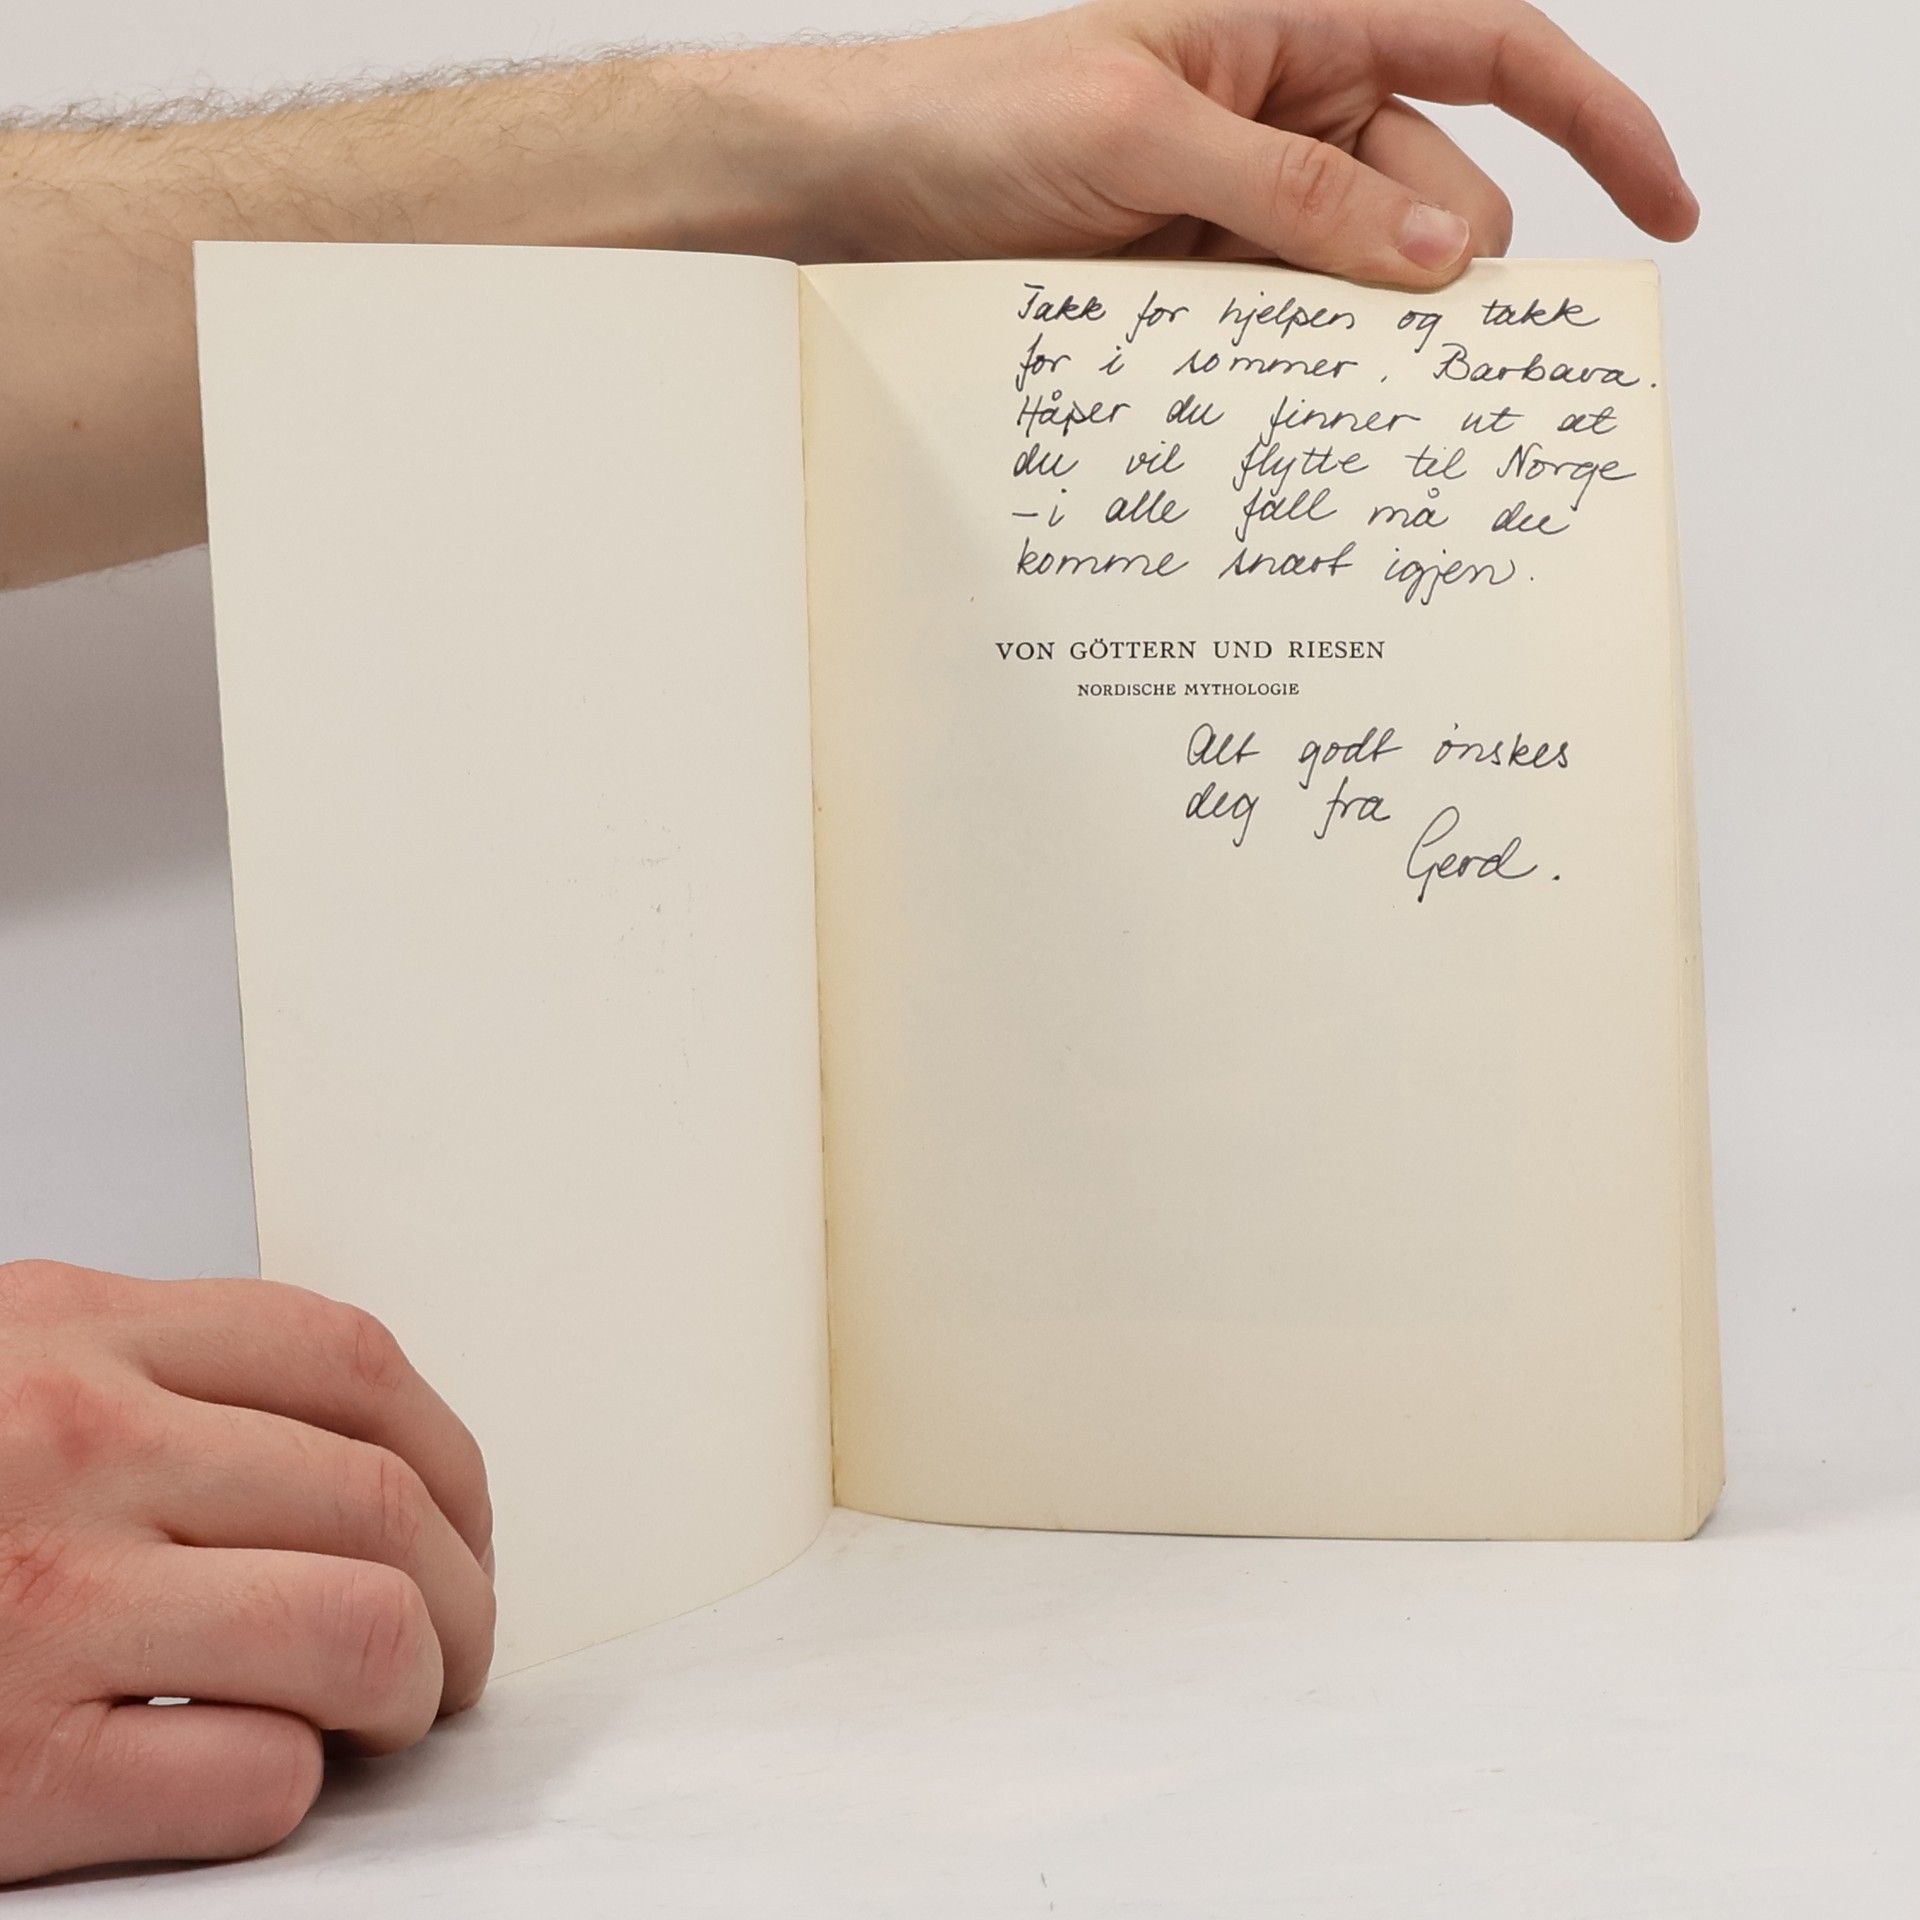 Takk for hjelpen og takk
for i sommer, Barbara.
Håper du finner ut at
du vil flytte til Norge
– i alle fall må du
komme snart igjen.
VON GÖTTERN UND RIESEN
NORDISCHE MYTHOLOGIE
Alt godt ønskes
deg fra
Gerd.